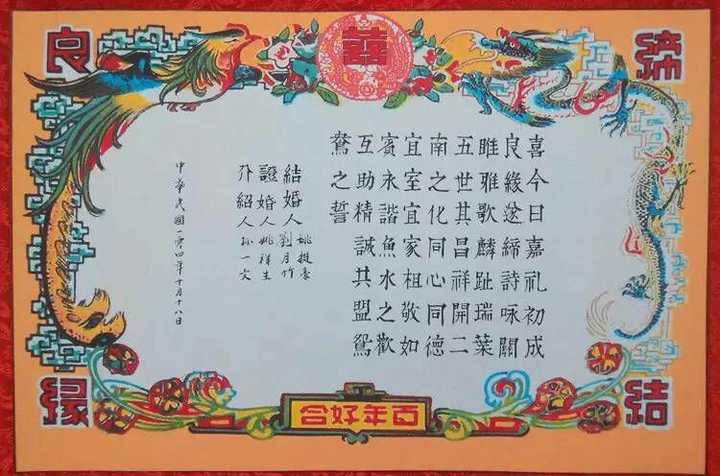 囍
締結
良緣
喜今日嘉礼初成
良緣遂締詩咏關
雎雅歌麟趾瑞葉
五世其昌祥開二
南之化同心同德
宜室宜家相敬如
賓永諧魚水之歡
互助精誠共盟鴛
鴦之誓
結婚人 姚 劉月竹
證婚人 姚祥生
介紹人 孫一文
中華民國一〇四年十月十八日
百年好合